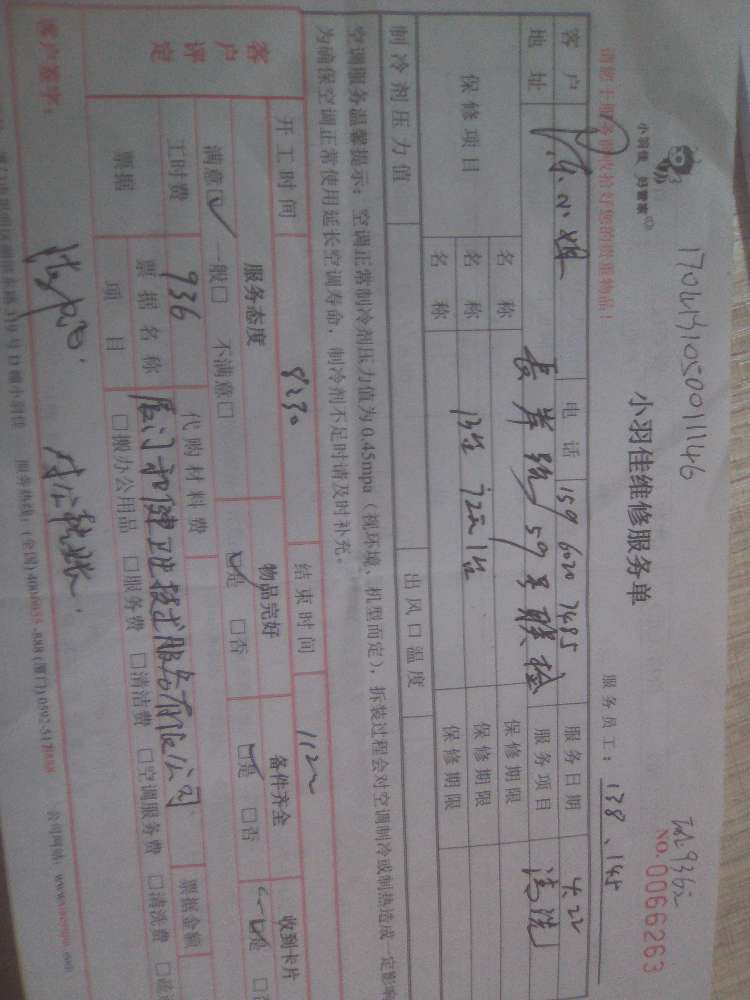 170413105001146
小羽佳 好管家
小羽佳维修服务单
服务员工: 138、145
936元
NO.0066263
请您于服务前收拾好您的贵重物品!
客户 陈小姐 电话 159 6020 7485 服务日期 4.22
地址 长岸路59号联检 服务项目 清洗
保修项目 名称 保修期限
名称 保修期限
名称 保修期限
制冷剂压力值 出风口温度
空调服务温馨提示: 空调正常制冷剂压力值为0.45mpa (视环境、机型而定), 拆装过程会对空调制冷或制热造成一定影响
为确保空调正常使用延长空调寿命, 制冷剂不足时请及时补充。
开工时间 8:30 结束时间 1122
客户评定 服务态度 物品完好 备件齐全 收到卡片
满意□ 一般□ 不满意□ □是 □否 □是 □否 □是
工时费 936 代购材料费
票据 票据名称 厦门和健卫生技术服务有限公司 票据金额
项目 □搬办公用品 □服务费 □清洁费 □空调服务费 □清洗费
客户签字:
服务热线: (全国) 公司网站: